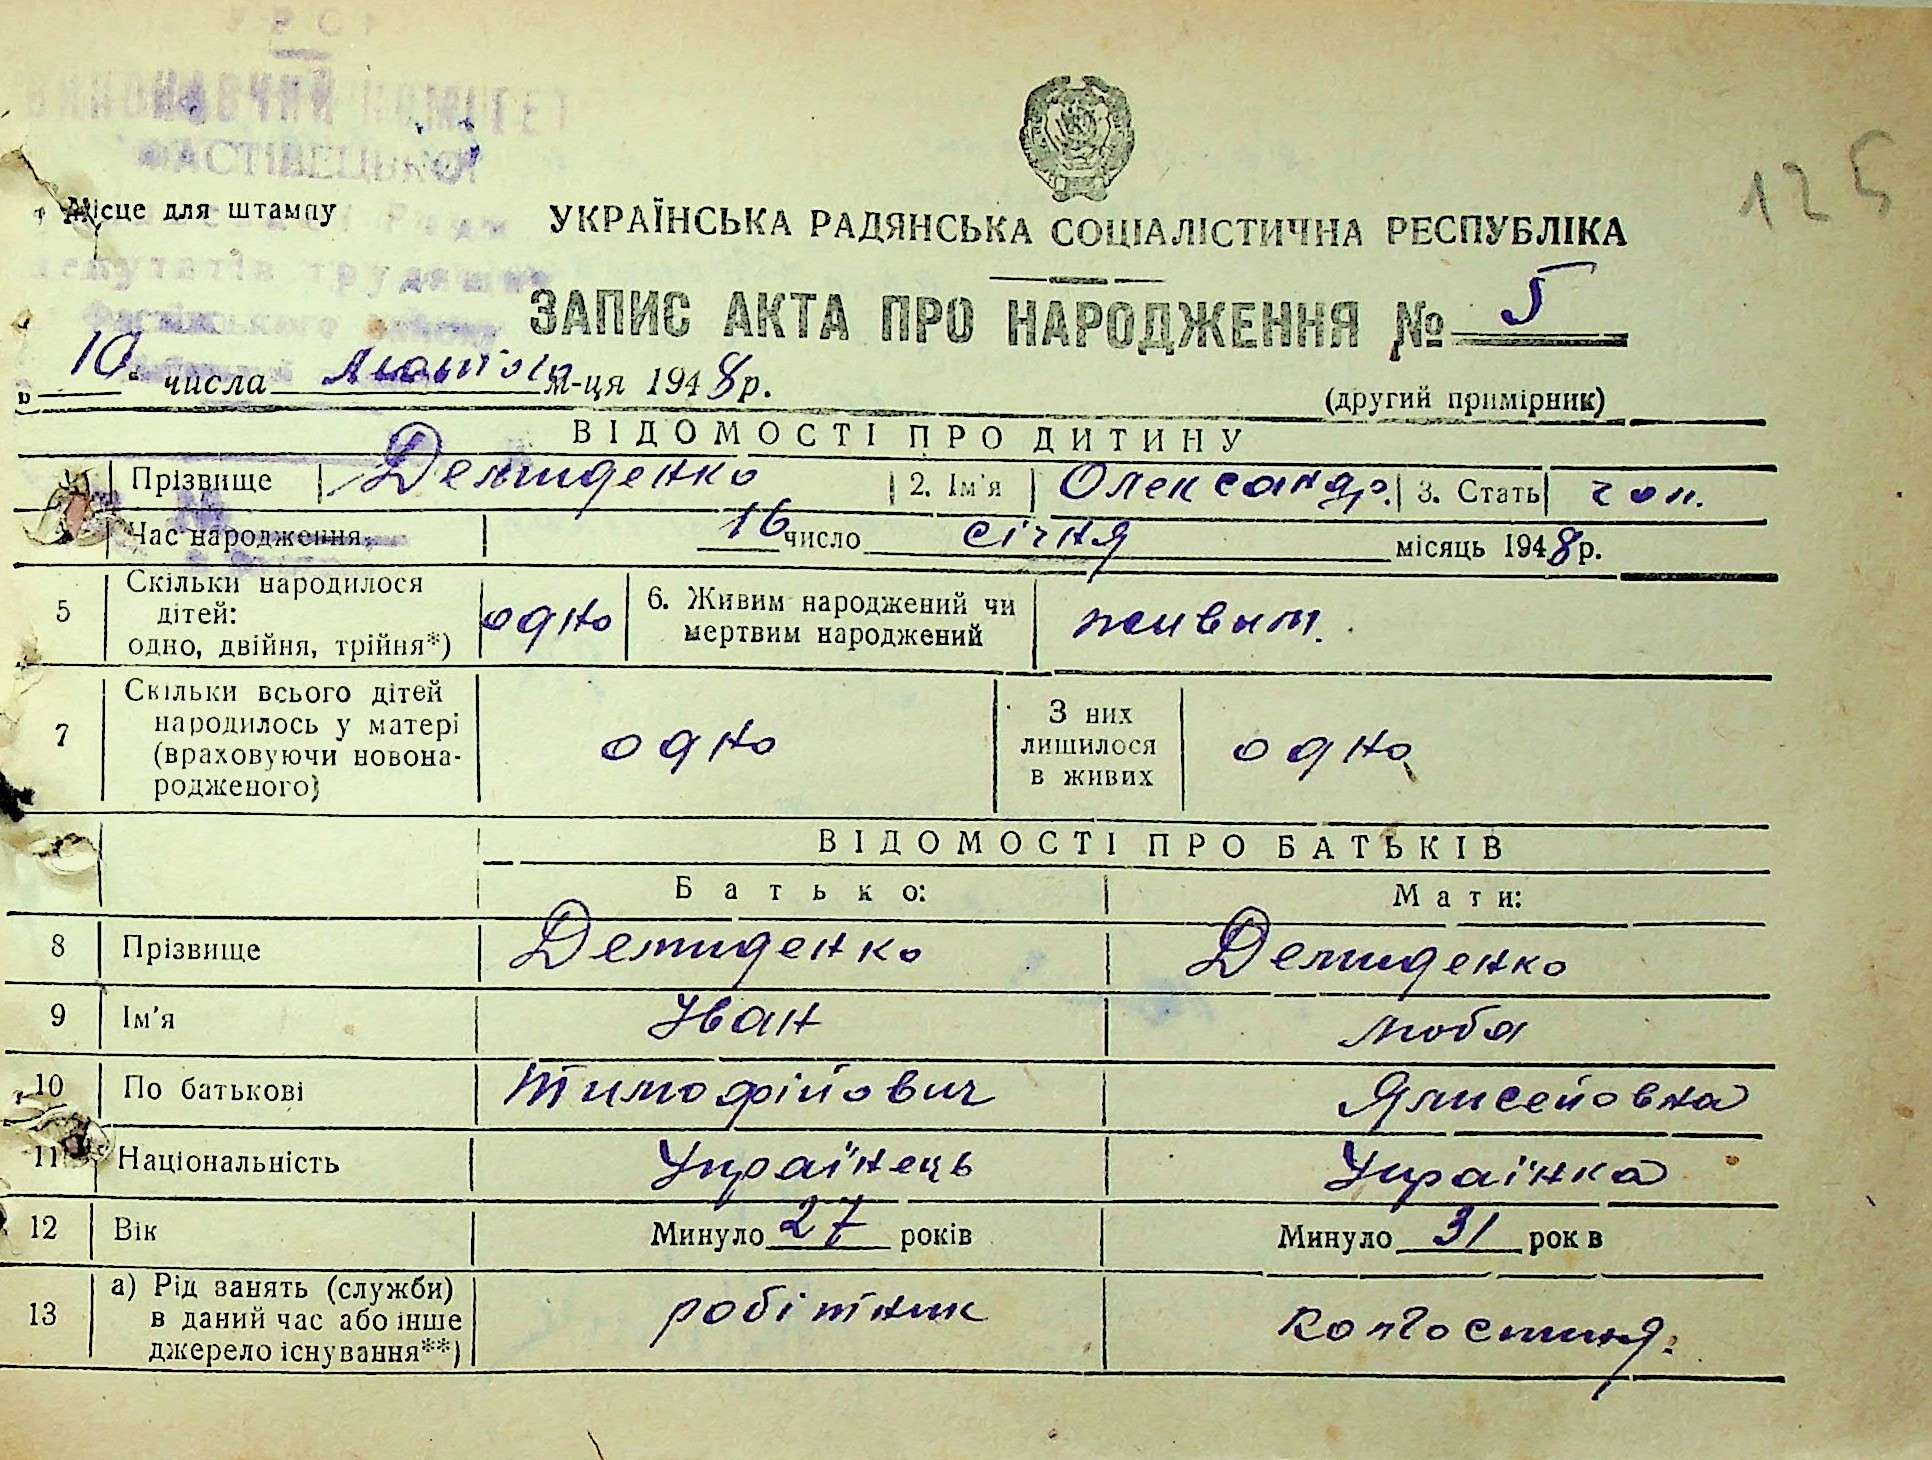 УРСР
ВИКОНАВЧИЙ КОМІТЕТ
ФАСТІВЕЦЬКОЇ
Ради
депутатів трудящих
125
Місце для штампу
УКРАЇНСЬКА РАДЯНСЬКА СОЦІАЛІСТИЧНА РЕСПУБЛІКА
ЗАПИС АКТА ПРО НАРОДЖЕННЯ № 5
„10“ числа лютого м-ця 1948 р.
(другий примірник)
ВІДОМОСТІ ПРО ДИТИНУ
Прізвище Демиденко 2. Ім'я Олександр. 3. Стать чол.
Час народження. 16 число січня місяць 1948 р.
5 Скільки народилося дітей: одно, двійня, трійня*) одно 6. Живим народжений чи мертвим народжений живым.
7 Скільки всього дітей народилось у матері (враховуючи новонародженого) одно З них лишилося в живих одно
ВІДОМОСТІ ПРО БАТЬКІВ
Батько: Мати:
8 Прізвище Демиденко Демиденко
9 Ім'я Іван Люба
10 По батькові Тимофійович Ялисейовна
11 Національність Українець Українка
12 Вік Минуло 27 років Минуло 31 рок в
13 а) Рід занять (служби) в даний час або інше джерело існування**) робітник колгоспниця.